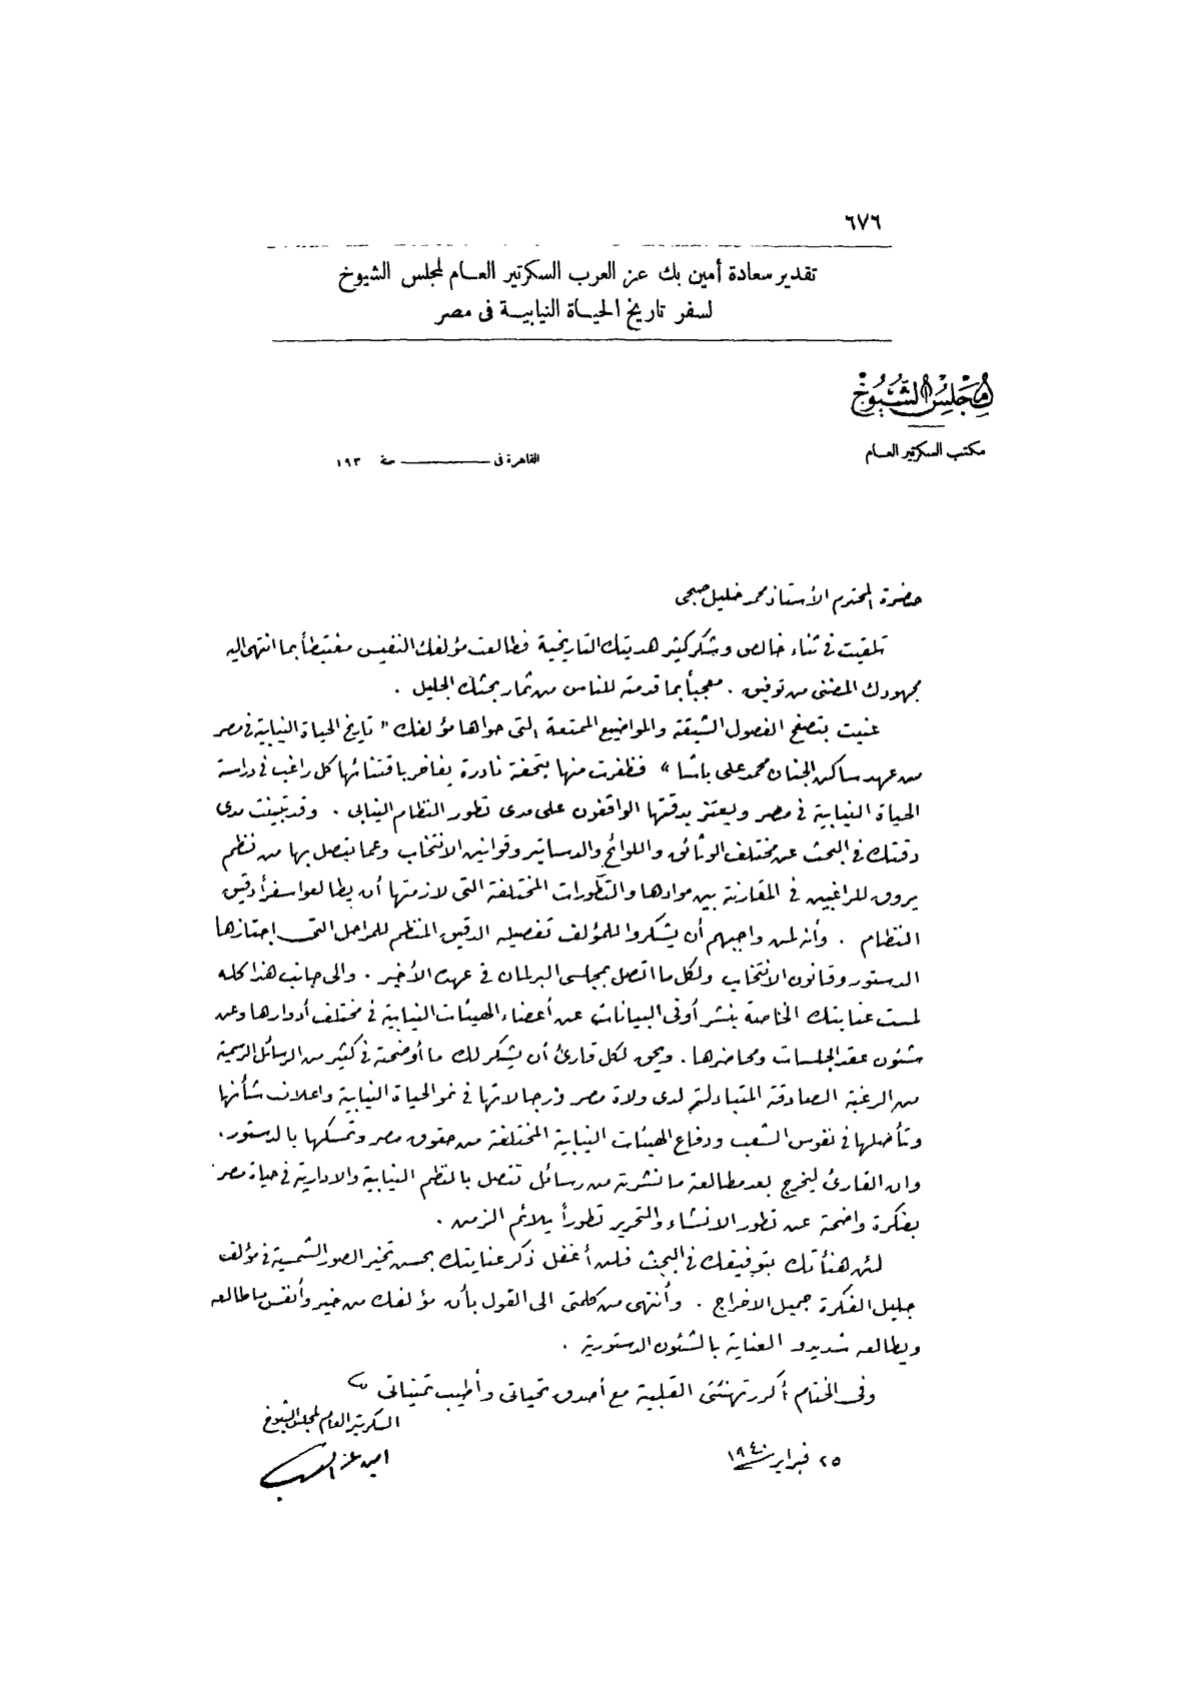 ٦٧٦
تقدير سعادة أمين بك عز العرب السكرتير العام لمجلس الشيوخ
لسفر تاريخ الحياة النيابية فى مصر
مجلس الشيوخ
مكتب السكرتير العام
القاهرة فى ـــــــــ سنة ١٩٣
حضرة المحترم الأستاذ محمد خليل صبحى
تلقيت فى ثناء خالص وشكر كثير هديتك التاريخية فطالعت مؤلفك النفيس مغتبطاً بما انتهى اليه
مجهودك المضنى من توفيق . معجباً بما قدمته للناس من ثمار بحثك الجليل .
عنيت بتصفح الفصول الشيقة والمواضيع الممتعة التى حواها مؤلفك " تاريخ الحياة النيابية فى مصر
من عهد ساكن الجنان محمد على باشا " فظفرت منها بتحفة نادرة يفاخر باقتنائها كل راغب فى دراسة
الحياة النيابية فى مصر ويعتز بدقتها الواقفون على مدى تطور النظام النيابى . وقد تبينت مدى
دقتك فى البحث عن مختلف الوثائق واللوائح والدساتير وقوانين الانتخاب وعما يتصل بها من نظم
يروق للراغبين فى المقارنة بين موادها والتطورات المختلفة التى لازمتها أن يطالعوا سفراً دقيق
النظام . وأنه لمن واجبهم أن يشكروا للمؤلف تفصيله الدقيق المنظم للمراحل التى اجتازها
الدستور وقانون الانتخاب ولكل ما اتصل بمجلسى البرلمان فى عهده الأخير . والى جانب هذا كله
لمست عنايتك الخاصة بنشر أوفى البيانات عن أعضاء الهيئات النيابية فى مختلف أدوارها وعن
شئون عقد الجلسات ومحاضرها . ويحق لكل قارئ أن يشكر لك ما أوضحته فى كثير من الرسائل الرسمية
من الرغبة الصادقة المتبادلة لدى ولاة مصر ورجالاتها فى نمو الحياة النيابية واعلاء شأنها
وتأصلها فى نفوس الشعب ودفاع الهيئات النيابية المختلفة عن حقوق مصر وتمسكها بالدستور .
وان القارئ ليخرج بعد مطالعة ما نشرته من رسائل تتصل بالنظم النيابية والادارية فى حياة مصر
بفكرة واضحة عن تطور الانشاء والتحرير تطوراً يلائم الزمن .
لئن هنأتك بتوفيقك فى البحث فلن أغفل ذكر عنايتك بحسن تخير الصور الشمسية فى مؤلف
جليل الفكرة جميل الاخراج . وأنتهى من كلمتى الى القول بأن مؤلفك من خير وأنفس ما طالعه
ويطالعه شديدو العناية بالشئون الدستورية .
وفى الختام أكرر تهنئتى القلبية مع أصدق تحياتى وأطيب تمنياتى
السكرتير العام لمجلس الشيوخ
امين عز العرب
٢٥ فبراير سنة ١٩٤٠